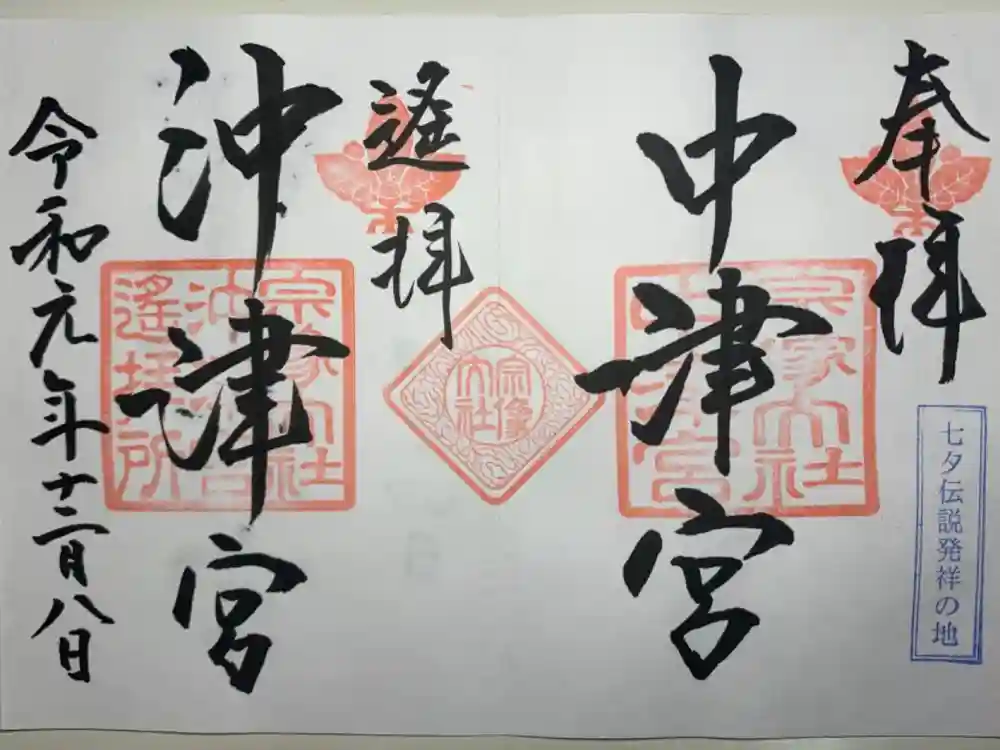 奉拝
中津宮
宗像大社
中津宮
七夕伝説発祥の地
宗像
大社
遥拝
沖津宮
宗像大社
沖津宮
遙拝所
令和元年十二月八日